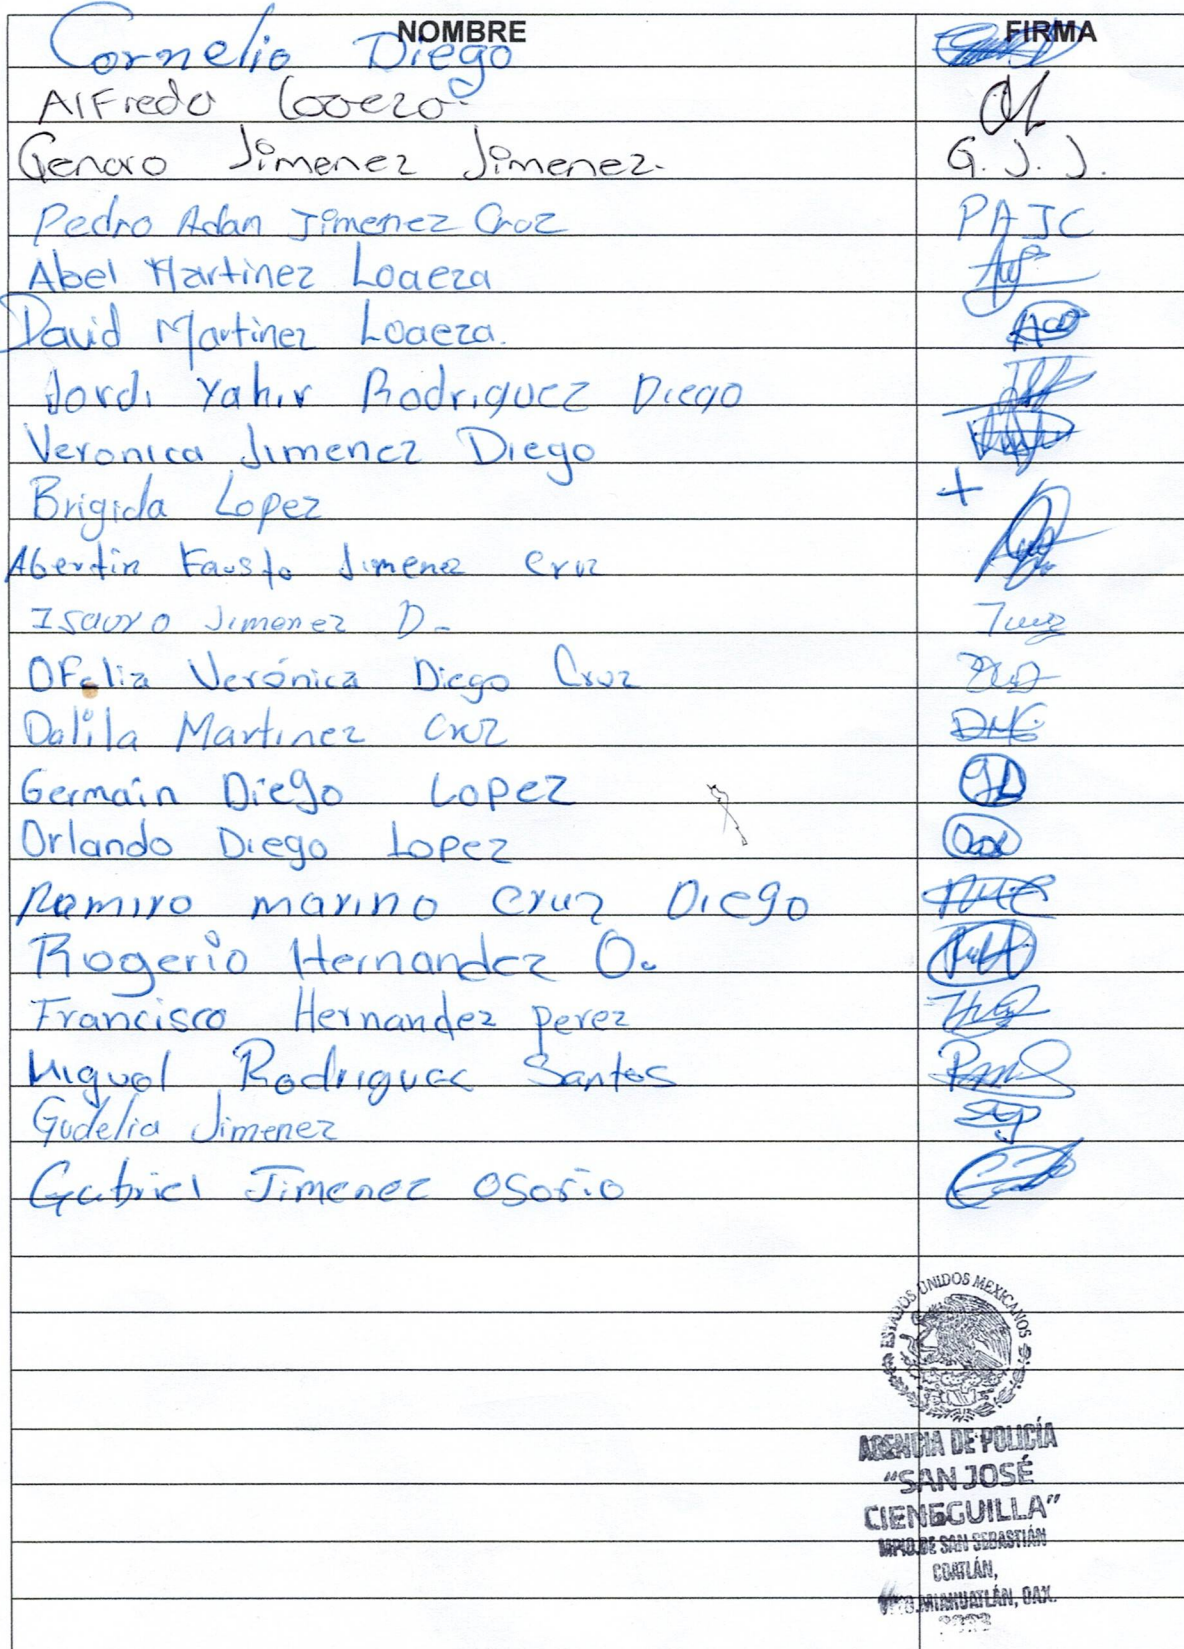 NOMBRE FIRMA
Cornelio Diego
Alfredo Loaeza.
Genaro Jimenez Jimenez. G. J. J.
Pedro Adan Jimenez Cruz PAJC
Abel Martinez Loaeza
David Martinez Loaeza.
Jordi Yahir Rodriguez Diego
Veronica Jimenez Diego
Brigida Lopez +
Abertin Fausto Jimenez Cruz
Isauro Jimenez D.
Ofelia Verónica Diego Cruz
Dalila Martinez Cruz DMC
Germain Diego Lopez GD
Orlando Diego Lopez
Ramiro marino Cruz Diego
Rogerio Hernandez O.
Francisco Hernandez perez
Miguel Rodriguez Santos
Gudelia Jimenez
Gabriel Jimenez Osorio
ESTADOS UNIDOS MEXICANOS
AGENCIA DE POLICÍA
"SAN JOSÉ
CIENEGUILLA"
MPIO. DE SAN SEBASTIÁN
COATLÁN,
MIAHUATLÁN, OAX.